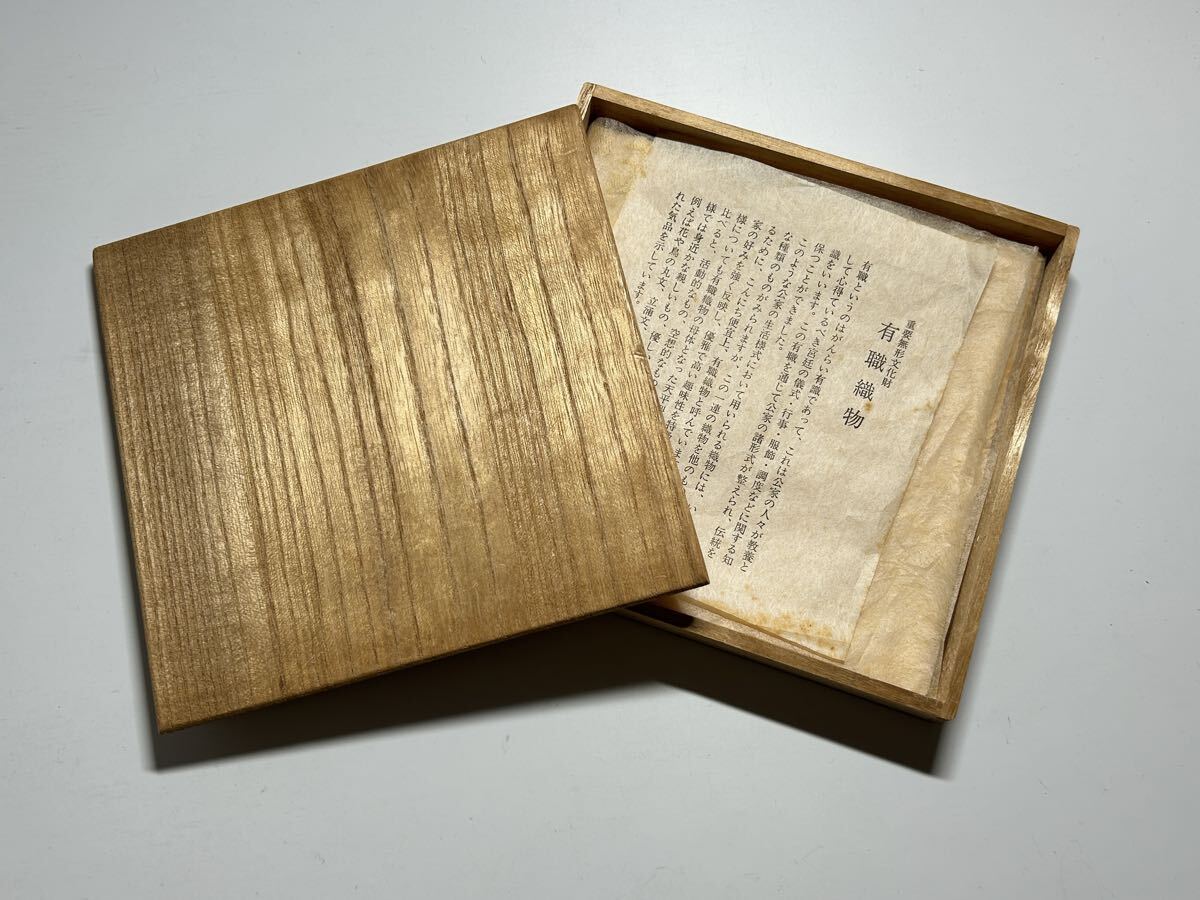 重要無形文化財
有職織物
有職というのはがんらい有識であって、これは公家の人々が教養と
して心得ているべき宮廷の儀式・行事・服飾・調度などに関する知
識をいいます。この有職を通して公家の諸形式が整えられ、伝統を
保つことができました。
このような公家の生活様式において用いられる織物には、い
な種類のものがみられますが、この一連の織物を他のも
るために、こんにち便宜上、有職織物と呼んでいま
家の好みを強く反映し、優雅で高い趣味性を特
様についても有職織物の母体となった天平
比べると、活動的なもの、空想的なも
様では身近かな親しいもの、優し
例えば花や鳥の丸文、立涌文、
れた気品を示しています。